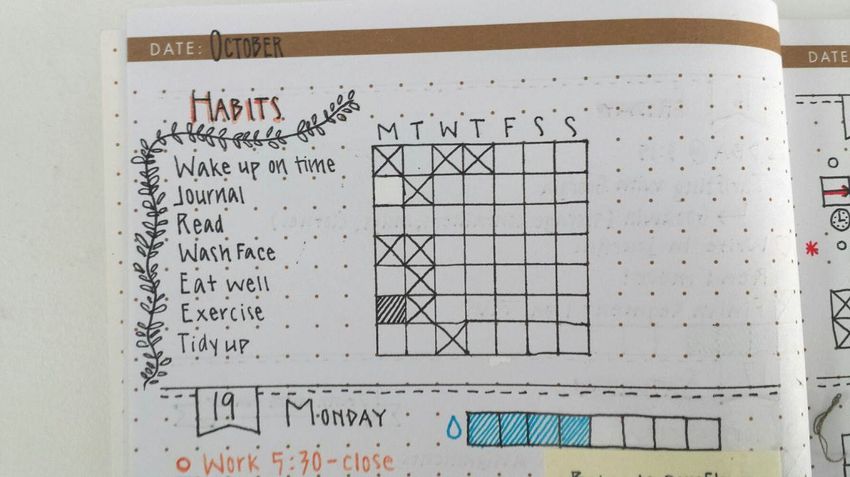 DATE: OCTOBER
DATE
HABITS
M T W T F S S
Wake up on time
Journal
Read
Wash Face
Eat well
Exercise
Tidy up
19 MONDAY
Work 5:30-close